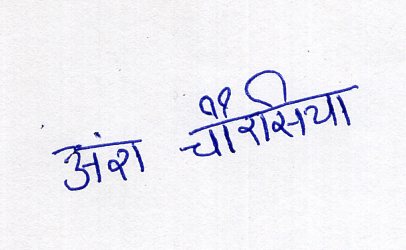 अंश चौरसिया